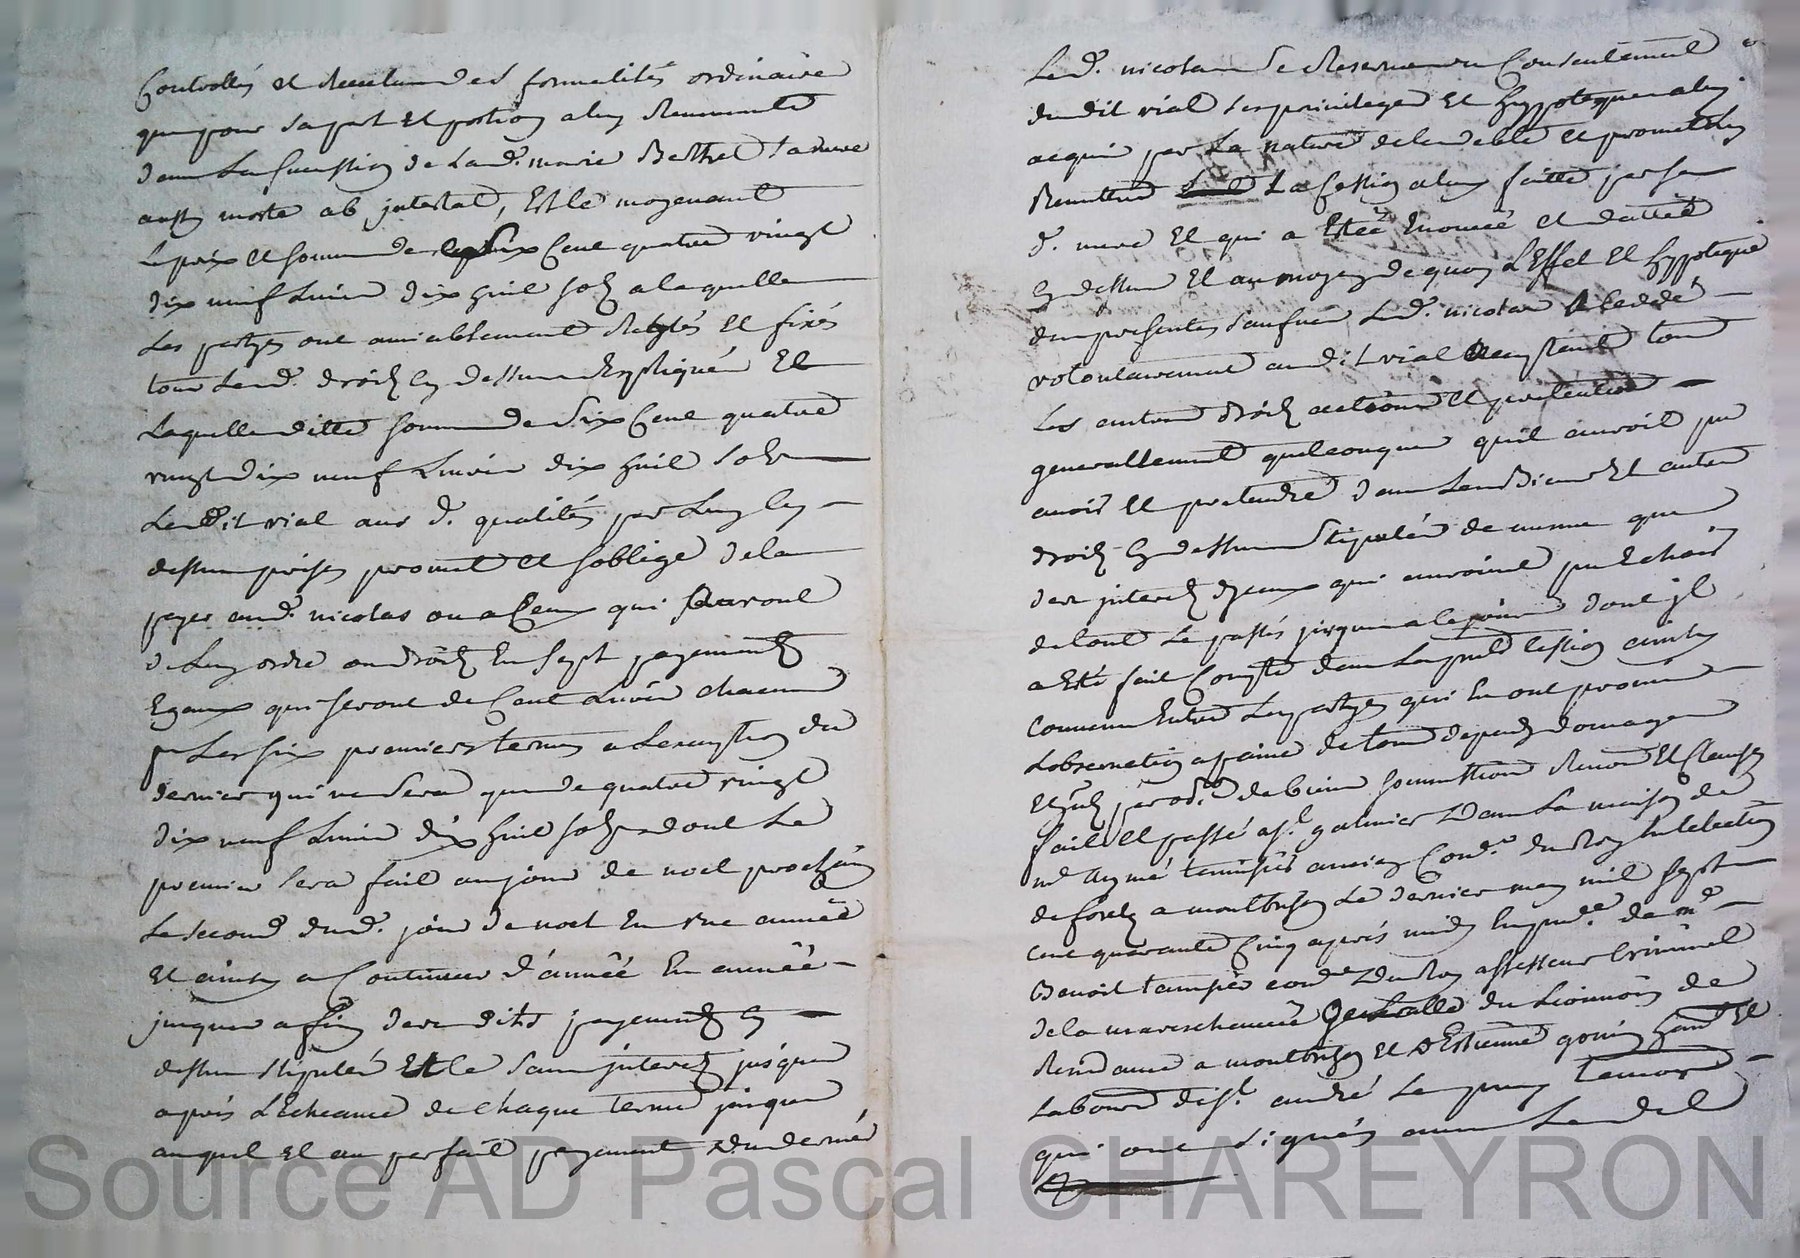 Controllés et Revetues des formalités ordinaire
que pour sa part et portion a luy Revenante
dans La succession de Lad.e marie Berthet sa mere
aussy morte ab intestat, Et ce moyenant
Le prix et somme de six Cent quatre vingt
dix neuf Livres dix huit sols a laquelle
Les partyes ont amiablement Reglés et fixés
tous Lesd. droits Cy dessus Expliqués Et
Laquelle ditte somme de Six Cent quatre
vingt dix neuf Livres dix huit sols
Ledit vial aux d. qualités par Luy Cy
dessus prises promet et soblige de la
payer aud. nicolas ou a Ceux qui sauront
de Luy ordre ou droits En sept payements
Egaux qui seront de Cent Livres chacun
p.r Les six premiers termes a Lexception du
dernier qui ne sera que de quatre vingt
dix neuf Livres dix huit sols dont Le
premier sera fait au jour de noel prochain
Le second dud. jour de noel En une année
Et ainsy a Continuer d'année En année
jusques a fin desdits payements Cy
dessus stipulés Et ce sans interets jusques
apres L'Echeance de chaque terme jusques
auquel et au parfait payement du dernier
Led. nicolas se Reserve du Consentement
dudit vial ses privileges et hyppoteques a luy
acquis par La nature de la debte et promet Luy
Remettre La Cession a luy faitte par sa
d. mere et qui a Estée Enoncée et dattée
Cy dessus Et au moyen de quoy L'Effet et hyppoteque
des presentes sauf né Led. nicolas a Cedé
volontairement audit vial acceptant tous
Les autres droits actions et pretentions
generallement quelconques quil auroit pu
avoir et pretendre dans Lesd. Biens Et autres
droits Cy dessus stipulés de meme que
des interets d'iceux qui auroint pu Echoir
de tout Le passés jusques a ce jour dont jl
a Eté fait Compte dans La presente Cession ainsy
convenu Entre Les partyes qui En ont promis
Lobservation a peine de tous depends domages
Et jnts par obl.on de biens soumissions Renons Et Clauses
fait et passé a S.t galmier Dans La maison de
m.e Aymé ancien Con.er du Roy En Lelection
de forets a montbrison Le dernier may mil sept
cent quarante Cinq apres midy En pnce de m.e
Benoit con.er Du Roy assesseur Criminel
de la marechaussée generalle du Lionnois de
Residance a montbrison et d'Estienne gonin hant et
Laboureur dud. St. andré Le puy temoins
qui ont signés avec Le dit